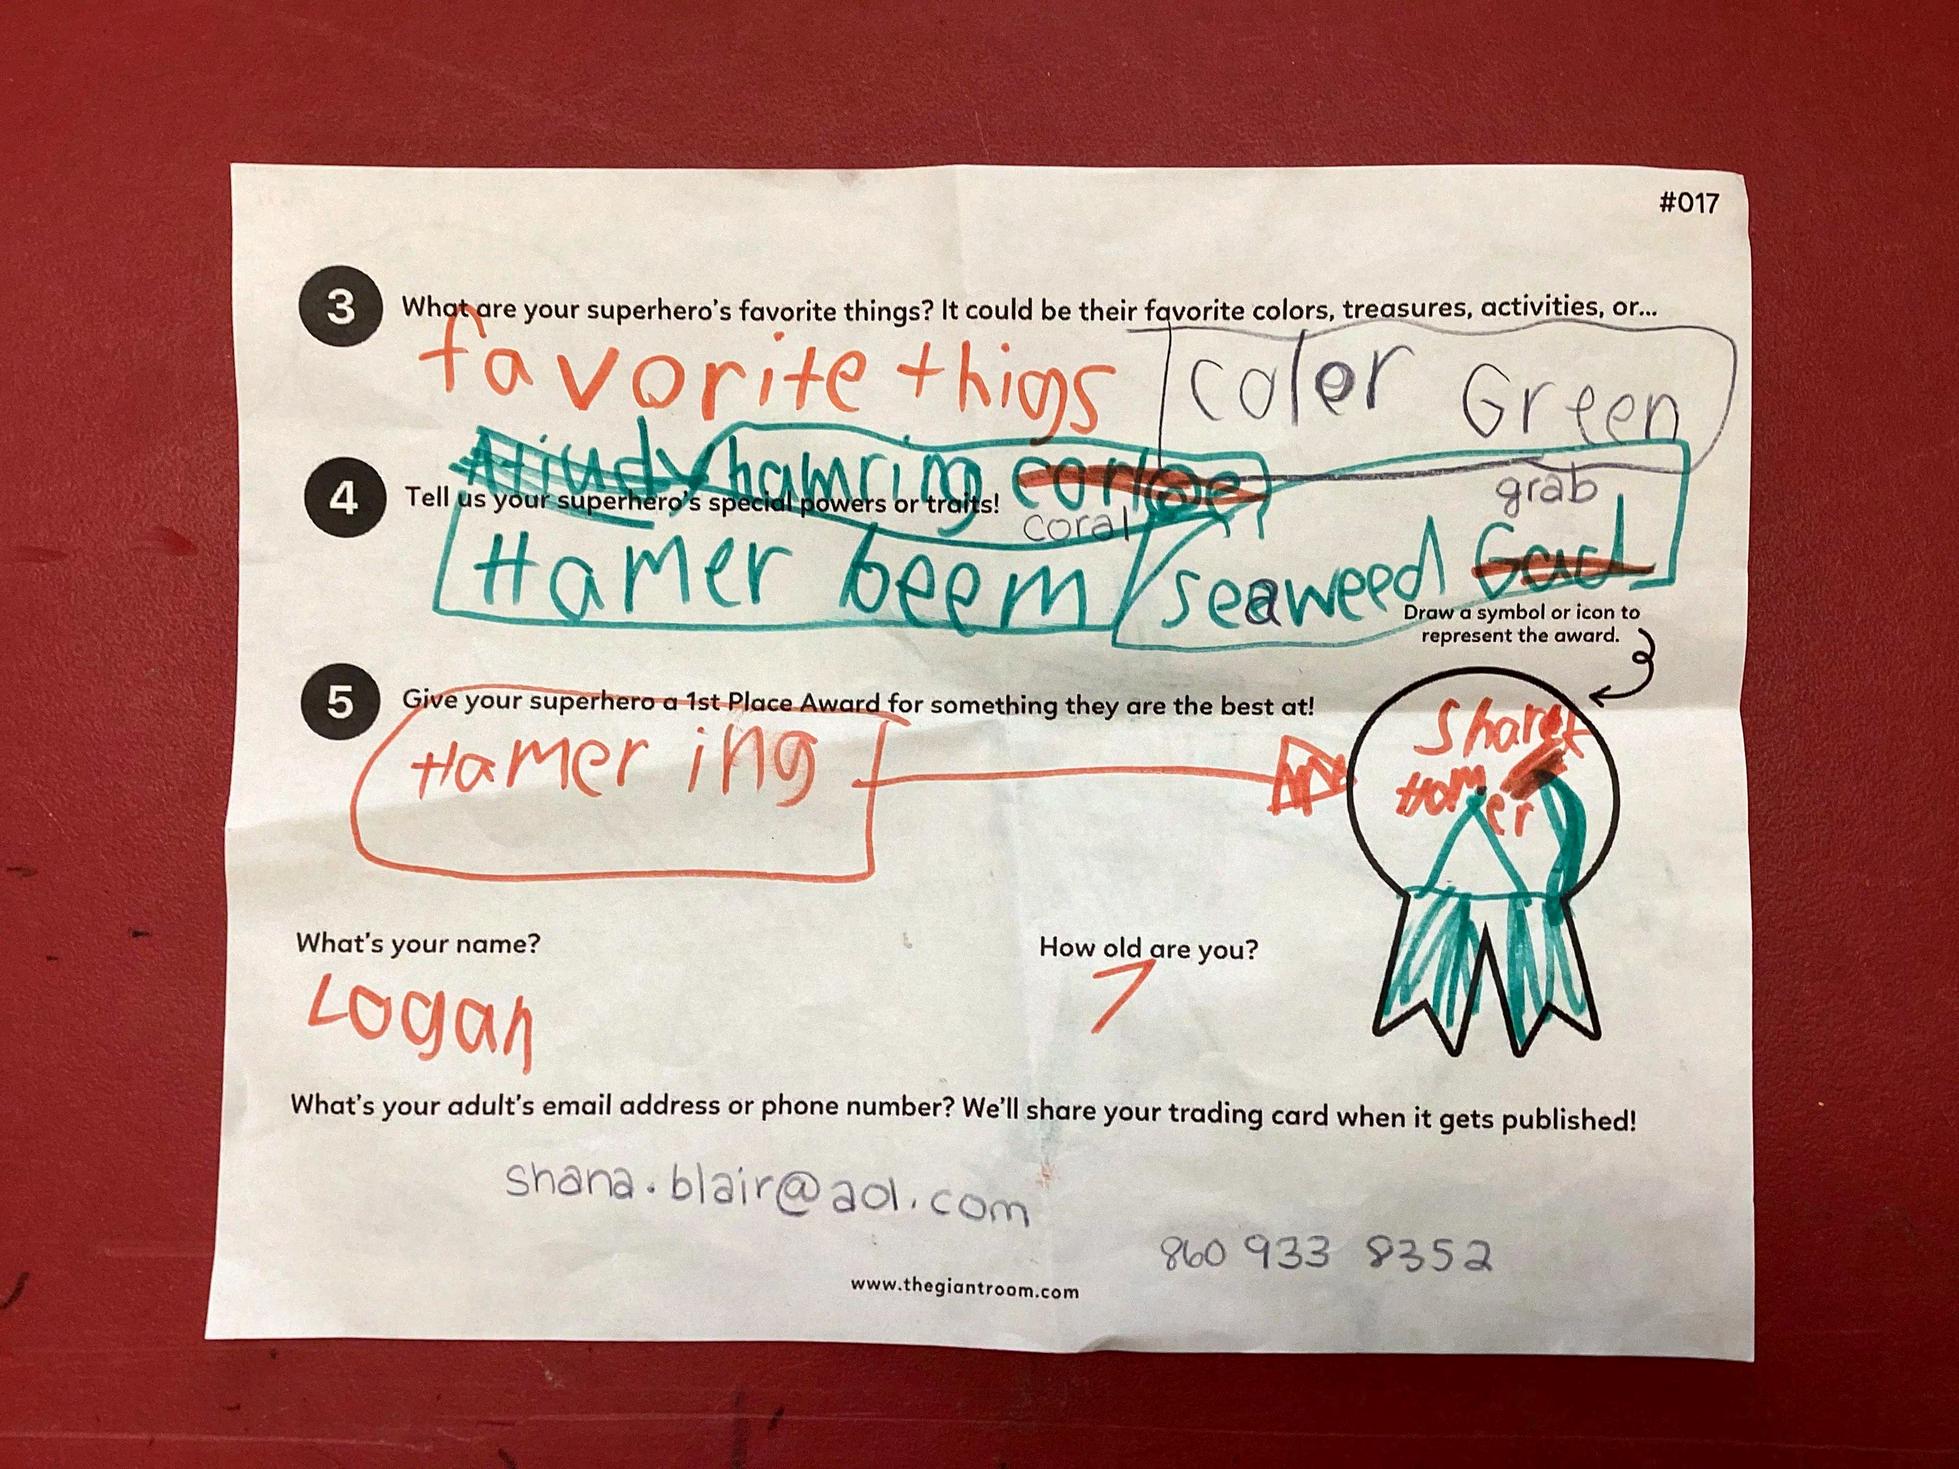 #017
3 What are your superhero's favorite things? It could be their favorite colors, treasures, activities, or...
favorite thigs
coler Green
hamring
4 Tell us your superhero's special powers or traits!
coral
grab
Hamer beem
seaweed
Draw a symbol or icon to
represent the award.
5 Give your superhero a 1st Place Award for something they are the best at!
Hamer ing
Share
Ham
er
What's your name?
How old are you?
Logan
7
What's your adult's email address or phone number? We'll share your trading card when it gets published!
shana.blair@aol.com
860 933 8352
www.thegiantroom.com